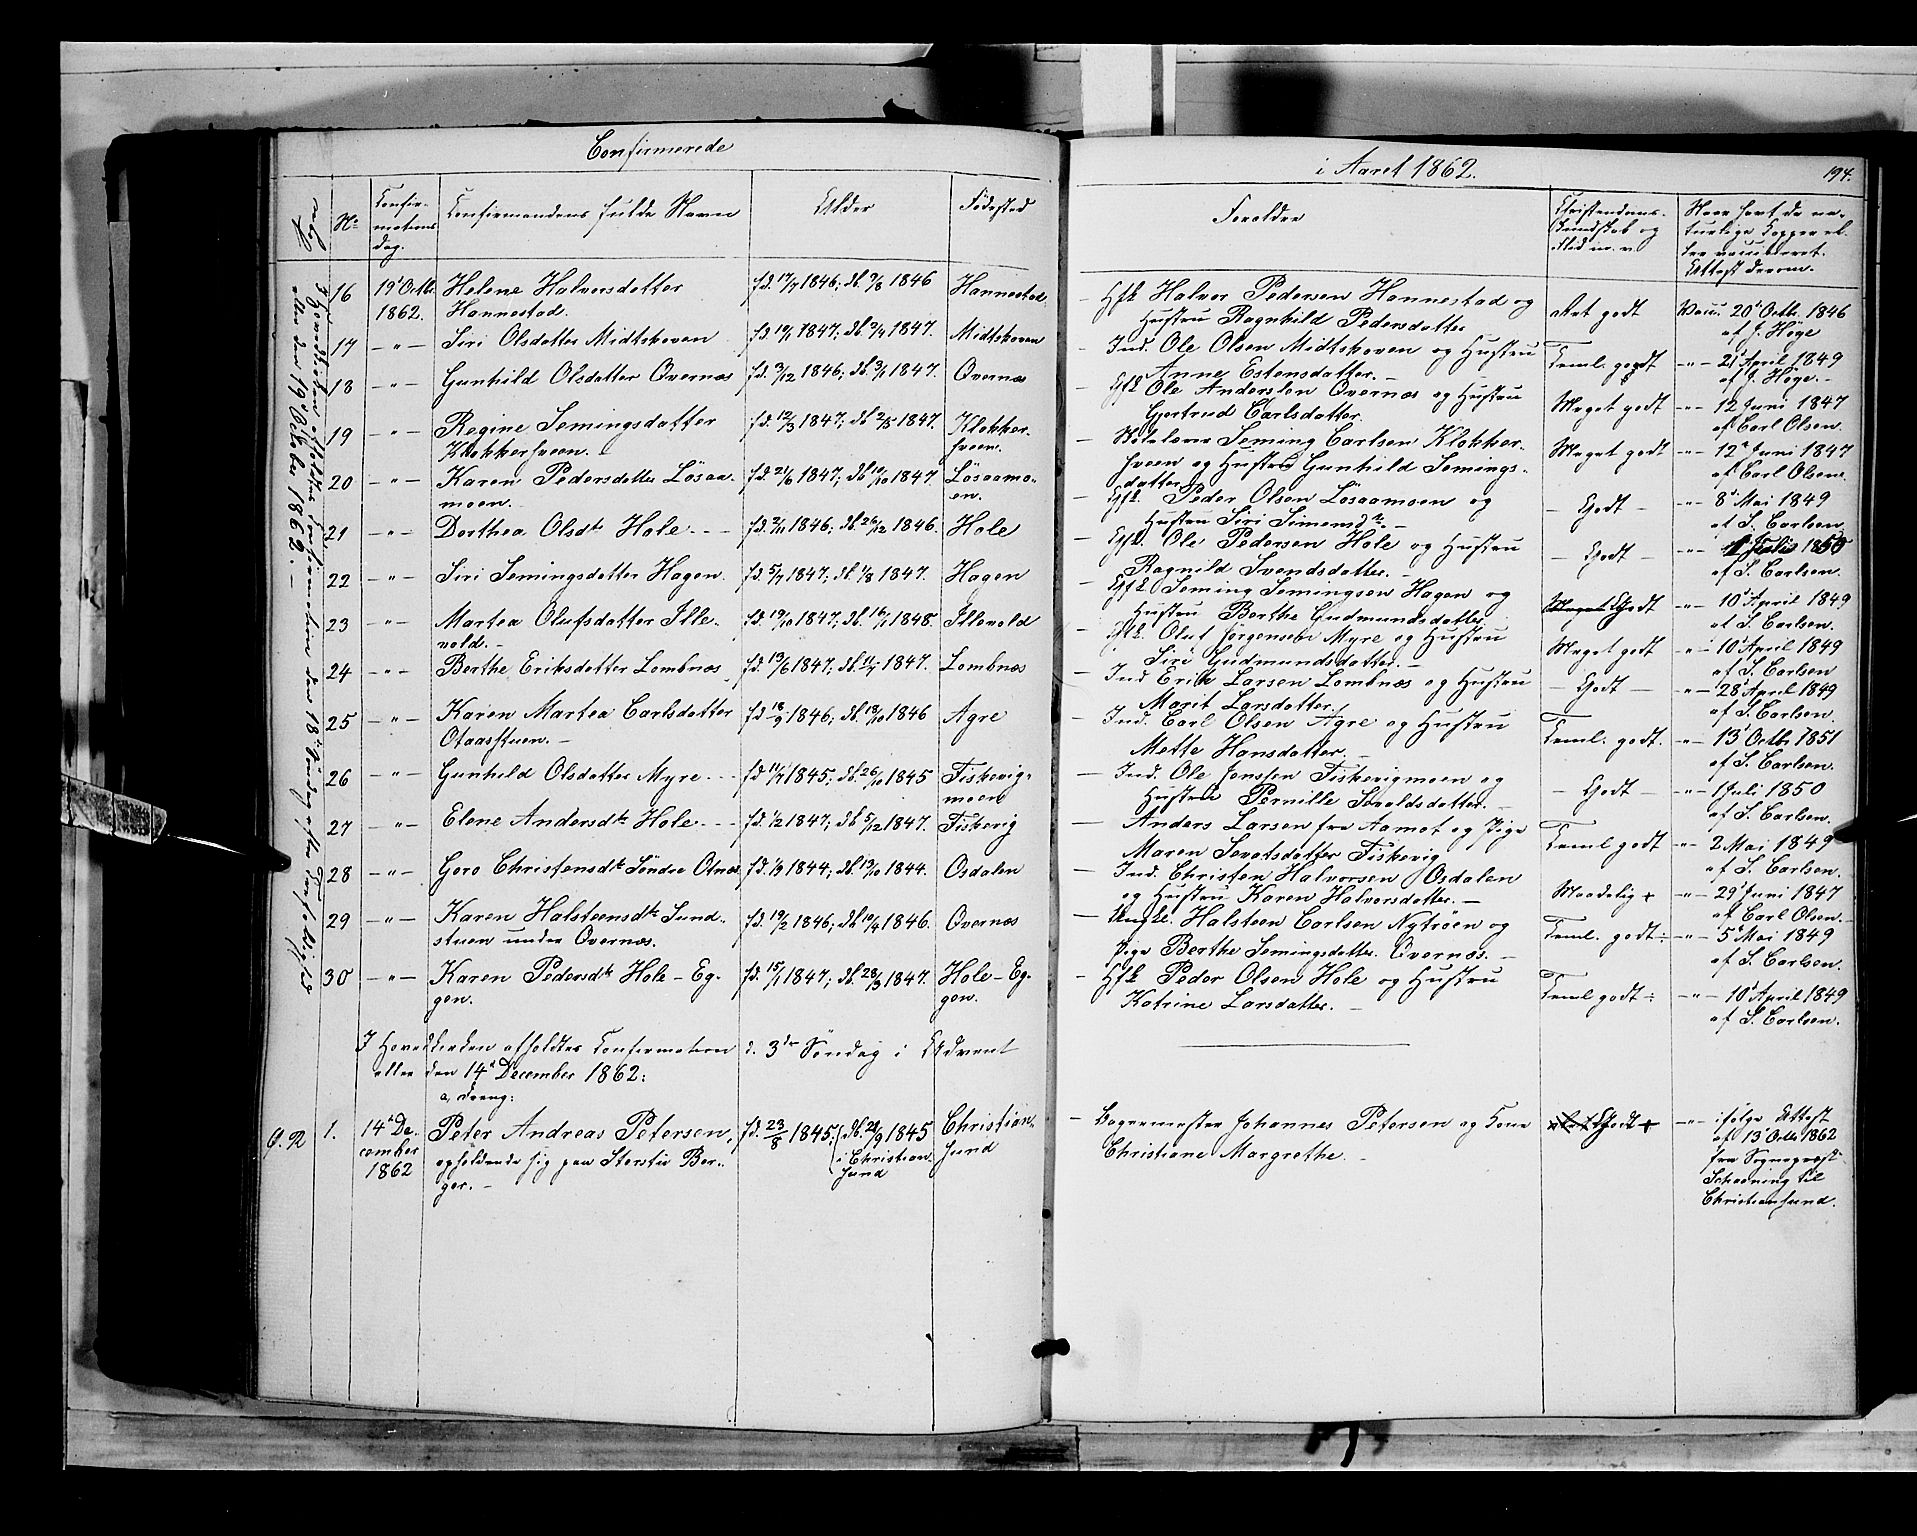 Confirmerede
No
Confirmations dag.
Confirmandens fulde Navn
Alder
Fødested
I Hovedkirken afholdtes Confirmation den 18de Søndag efter Trefoldighed
eller den 19de October 1862. -
16 19de Octbr. Helene Halvorsdatter fd. 17/7 1846; db. 9/8 1846 Hannestad
1862. Hannestad.
17 -"- Siri Olsdatter Midtskoven fd. 19/1 1847; db. 1847. Midtskoven
18 -"- Gunhild Olsdatter Øvernæs fd. 3/12 1846; db. 3/1 1847. Øvernæs
19 -"- Regine Semingsdatter fd. 12/3 1847; db. 2/5 1847. Klokker-
Klokkersveen. sveen.
20 -"- Karen Pedersdatter Løsaa- fd. 21/6 1847; db. 10/10 1847 Løsaamo-
moen. en.
21 -"- Dorthea Olsdtr. Hole - - - fd. 2/11 1846; db. 26/12 1846. Hole
22 -"- Siri Semingsdatter Hagen. fd. 5/7 1847; db. 1/8 1847. Hagen
23 -"- Martea Olufsdatter Ille- fd. 19/10 1847; db. 16/1 1848. Illevold
vold. -
24 -"- Berthe Eriksdatter Lombnæs fd. 13/6 1847; db. 11/7 1847. Lombnæs
25 -"- Karen Martea Carlsdatter fd. 18/9 1846; db. 18/10 1846 Agre
Otaasstuen. -
26 -"- Gunhild Olsdatter Myre - - fd. 11/7 1845; db. 26/10 1845 Fiskevig-
moen
27 -"- Elene Andersdtr. Hole - - - fd. 1/2 1847; db. 5/12 1847. Fiskevig
28 -"- Goro Christensdtr. Søndre Otnæs fd. 1844; db. 13/10 1844. Osdalen
29 -"- Karen Halsteensdtr. Sund- fd. 19/2 1846; db. 19/4 1846. Øvernæs
stuen under Øvernæs.
30 -"- Karen Pedersdtr. Hole-Eg- fd. 15/1 1847; db. 28/3 1847. Hole-Eg-
gen. gen.
I Hovedkirken afholdtes Confirmation d. 3die Søndag i Advent
eller den 14de December 1862:
a, Dreng:
1. 14de De- Peter Andreas Petersen, fd. 23/8 1845. db. 21/9 1845 Christian-
cember opholdende sig paa Storstu Ber- i Christian- sund
1862 ger. - sund
i Aaret 1862. 194.
Forældre
Christendoms-
Kundskab og
Flid m. v.
Naar havt de na-
turlige Kopper el-
ler vaccineret.
Attest derom.
- Gfb. Halvor Pedersen Hannestad og Ret godt Vacc. 20de Octbr. 1846
Hustru Ragnhild Pedersdatter af J. Høye
- Ind. Ole Olsen Midtskoven og Hustru Teml. godt -"- 21de April 1849
Anne Estensdatter. - af J. Høye. -
- Gfb. Ole Anderssen Øvernæs og Hustru Meget godt -"- 12 Juni 1847
Gjertrud Carlsdatter. af Carl Olsen.
- Seming Carlsen Klokker- Meget godt -"- 12te Juni 1847
sveen og Hustru Gunhild Semings- af Carl Olsen.
datter
- Gfb. Peder Olsen Løsaamoen og - Godt - -"- 8de Mai 1849
Hustru Siri Simensdtr. - af S. Carlsen
- Gfb. Ole Pedersen Hole og Hustru - Godt - -"- 1 Juli 1850
Ragnild Svendsdatter. - af S. Carlsen.
- Gfb. Seming Semingsen Hagen og Meget Godt -"- 10de April 1849
Hustru Berthe Gudmundsdatter af S. Carlsen.
- Gfb. Oluf Jørgensen Myre og Hustru Meget godt -"- 10de April 1849
Siri Gudmundsdatter. - af S. Carlsen
- Ind. Erik Larsen Lombnæs og Hustru - Godt - -"- 28de April 1849
Marit Larsdatter. af S. Carlsen.
- Ind. Carl Olsen Agre og Hustru Teml. godt. -"- 13de Octbr. 1851
Mette Hansdatter. - af S. Carlsen.
- Ind. Ole Jonssen Fiskevigmoen og - Godt - -"- 1 Juli 1850
Hustru Pernille -datter. - af S. Carlsen.
- Anders Larsen fra Aamot og Pige Teml. godt -"- 2 Mai 1849
Maren Fiskevig af S. Carlsen.
- Ind. Christen Halvorsen Osdalen Maadelig + -"- 29de Juni 1847
og Hustru Karen Halvorsdatter. - af Carl Olsen. -
- Ungk. Halsteen Carlsen Nytrøen og Teml. godt ÷ -"- 5te Mai 1849
Pige Berthe Semingsdatter Øvernæs. - af S. Carlsen.
- Gfb. Peder Olsen Hole og Hustru Teml godt ÷ -"- 10de April 1849
Katrine Larsdatter. - af S. Carlsen.
- Johannes Petersen og Kone Godt + -"- ifølge Attest
Christiane Margrethe. - af 13de Octbr 1862
fra Sognepræst
til
Christiansund.